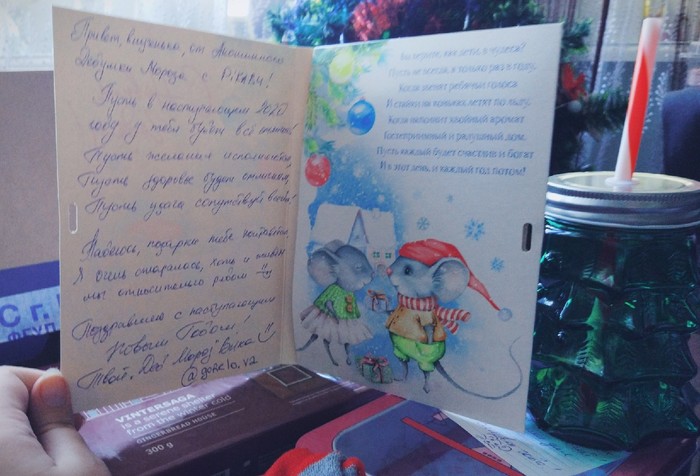 Привет, от Анонимного
Дедушки Мороза с Pikabu!
Пусть в наступающем 2020
году у тебя будет всё отлично!
Пусть желания исполняются,
Пусть здоровье будет отличным,
Пусть удача сопутствует всегда!
Надеюсь, подарки тебе понравятся,
Я очень старалась, хоть и живём
мы относительно рядом
Поздравляю с наступающим
Новым Годом!
Твой "Дед Мороз"
@gorelo.v2
Вы верите, как дети, в чудеса?
Пусть не всегда, а только раз в году,
Когда звенят ребячьи голоса
И стайки на коньках летят по льду,
Когда наполнит хвойный аромат
Гостеприимный и радушный дом.
Пусть каждый будет счастлив и богат
И в этот день, и каждый год потом!
С г.
ФГУП
VINTERSAGA
is a serene shelter
from the winter cold
GINGERBREAD HOUSE
300 g